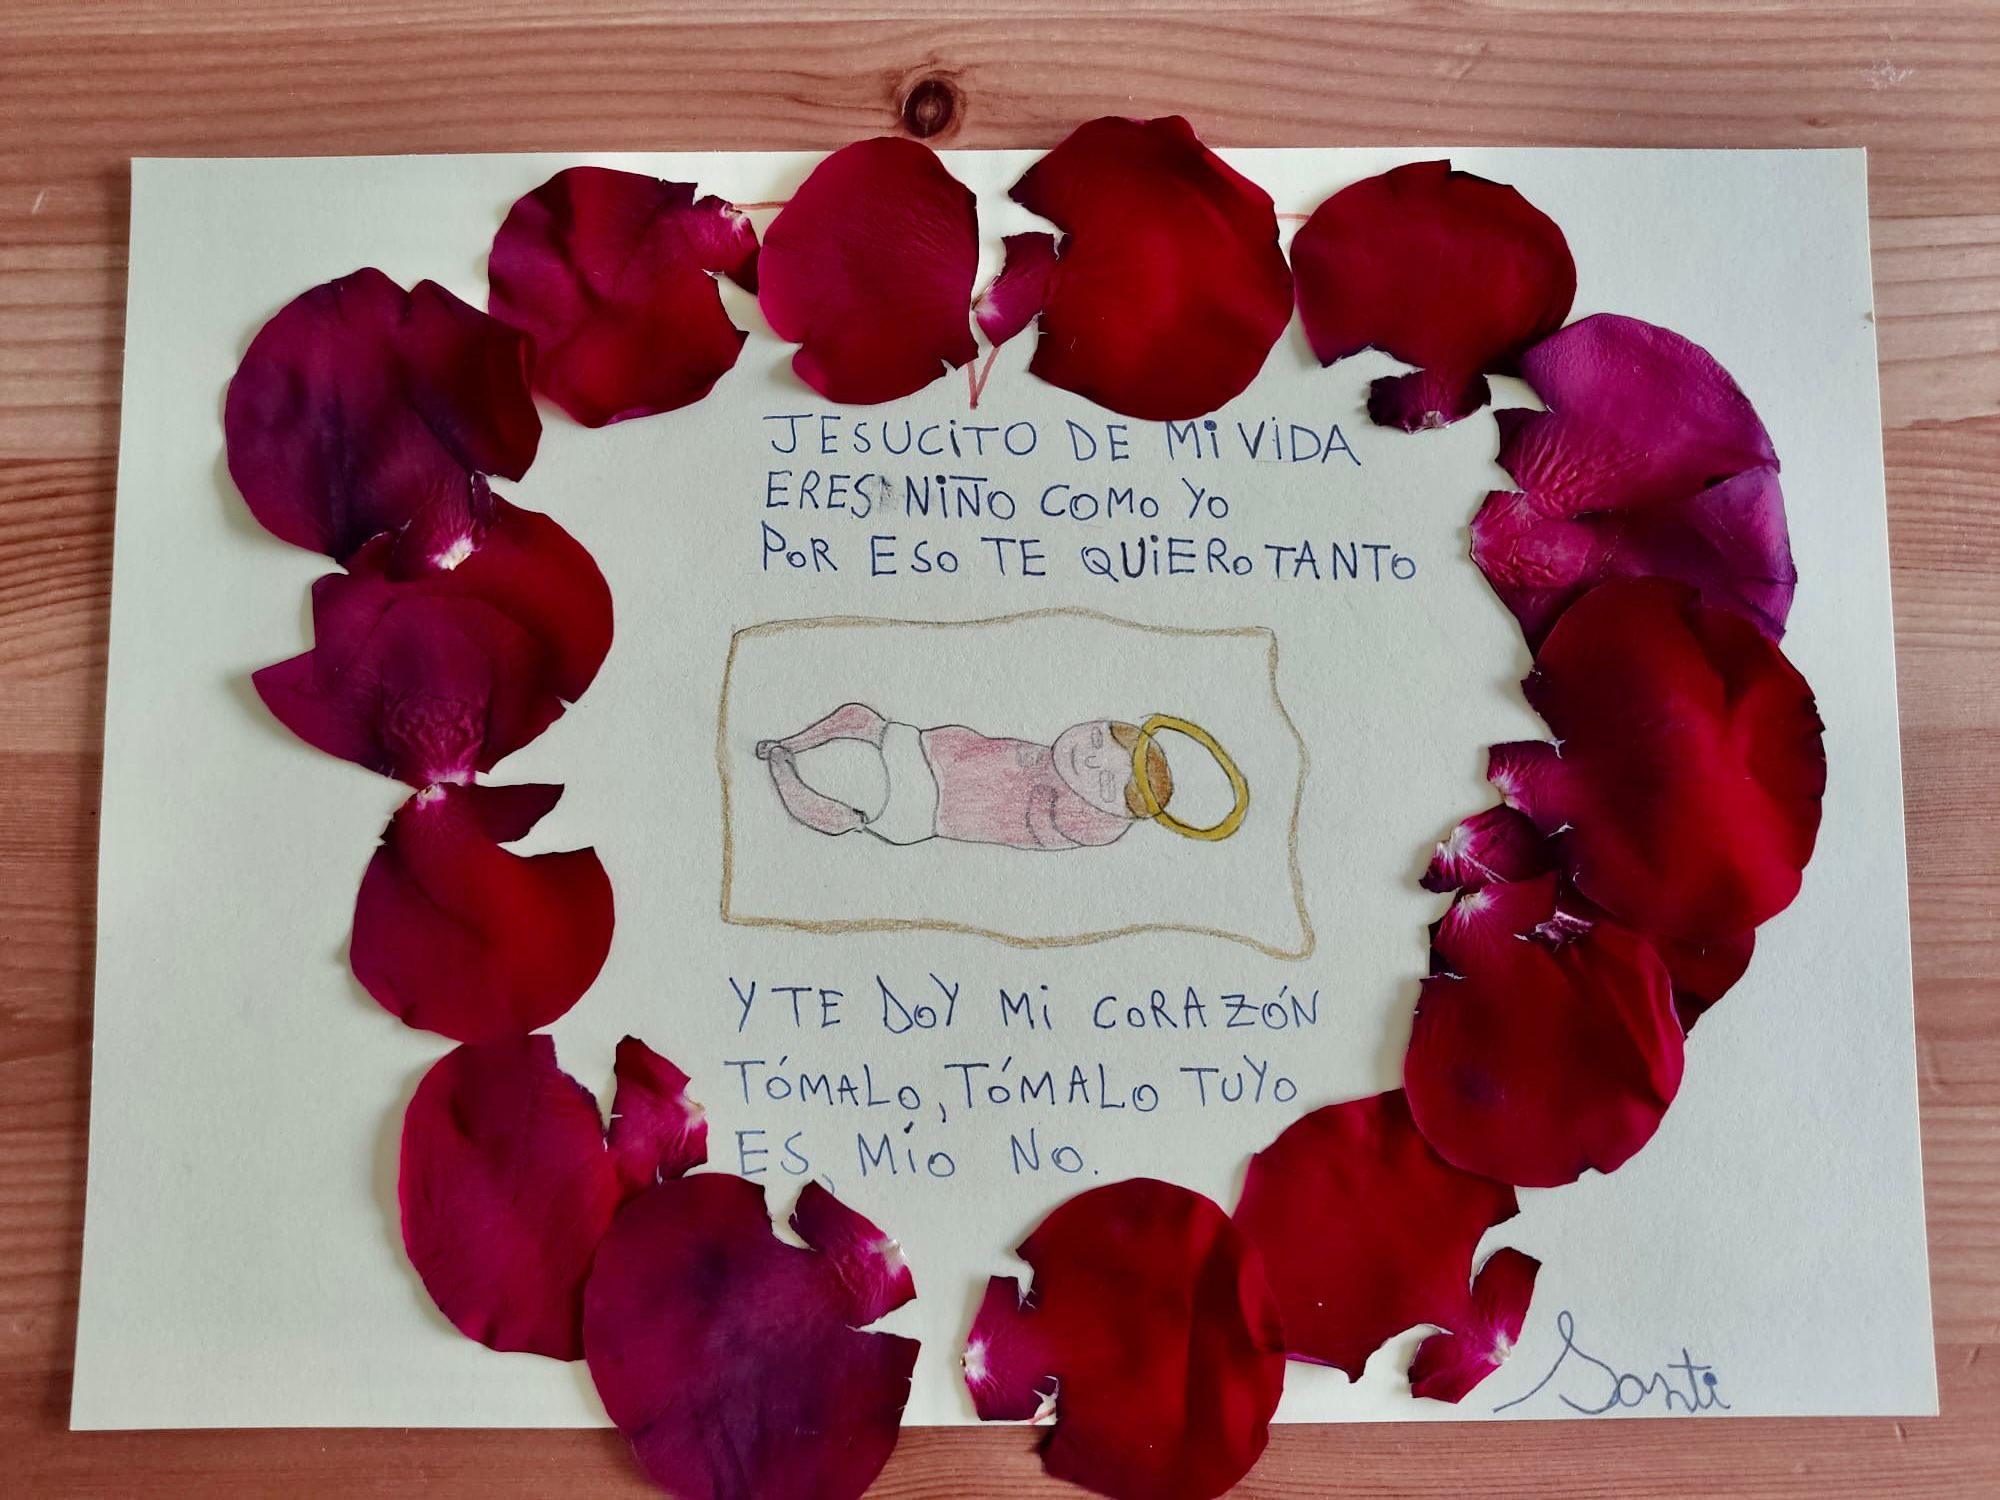 JESUCITO DE Mi ViDA
ERES NiÑO COMO YO
POR ESO TE QUiERO TANTO
Y TE DOY Mi CORAZÓN
TÓMALO, TÓMALO TUYO
ES, MÍO NO.
Santi